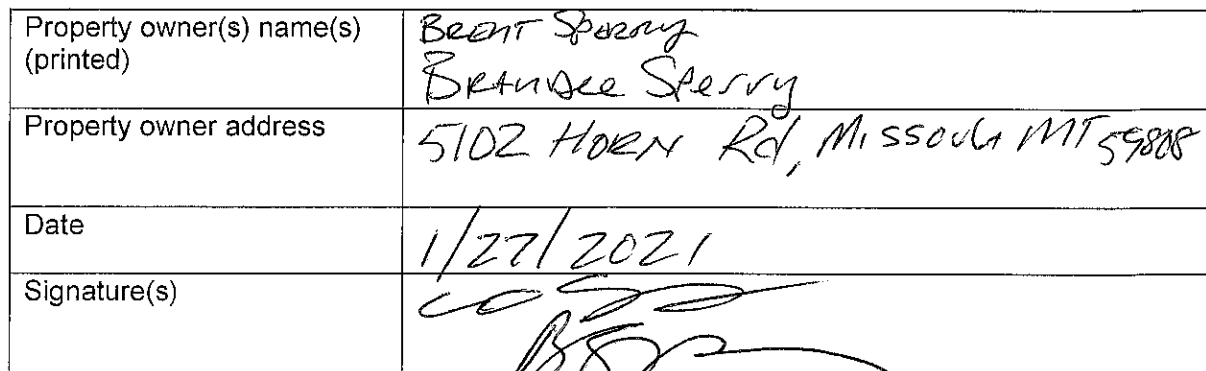 Property owner(s) name(s)
(printed)
Brent Sperry
Brandee Sperry
Property owner address
5102 Horn Rd, Missoula MT 59808
Date
1/27/2021
Signature(s)